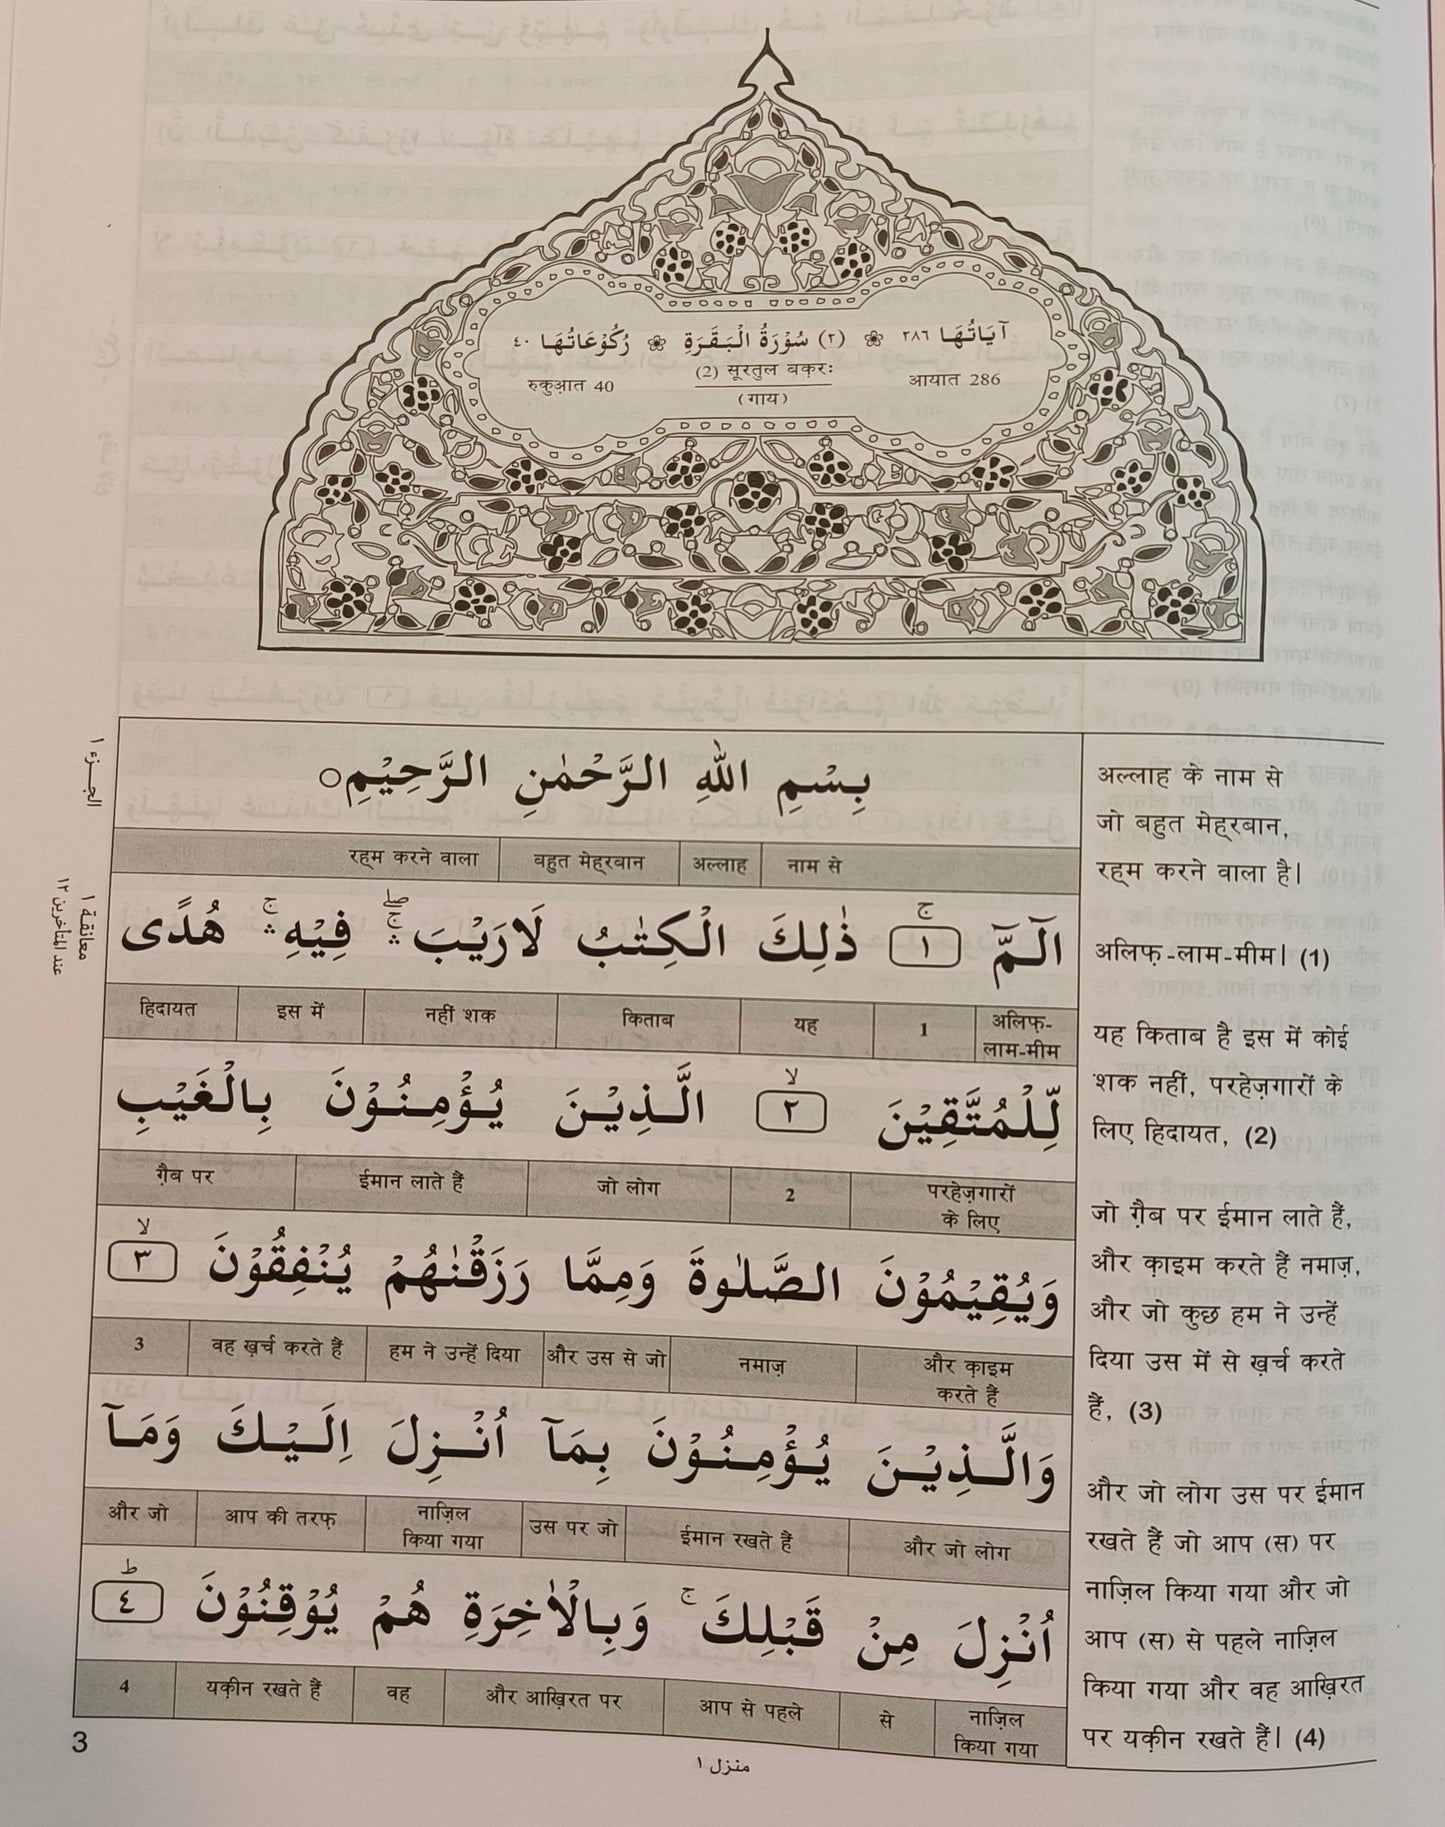 آيَاتُهَا ٢٨٦ ❀ (٢) سُوْرَةُ الْبَقَرَةِ ❀ رُكُوْعَاتُهَا ٤٠
आयात 286 (2) सूरतुल बक़रः रुकुआ़त 40
(गाय)
الجزء ١
معانقة ١
عند المتأخرين ١٢
بِسْمِ اللهِ الرَّحْمٰنِ الرَّحِيْمِ○
नाम से अल्लाह बहुत मेह्‌रबान रह्‌म करने वाला
الٓمّٓ ۚ ١ ذٰلِكَ الْكِتٰبُ لَارَيْبَ ۛۚۖ فِيْهِ ۛۚ هُدًى
अलिफ़-लाम-मीम 1 यह किताब नहीं शक इस में हिदायत
لِّلْمُتَّقِيْنَ ۙ ٢ الَّذِيْنَ يُؤْمِنُوْنَ بِالْغَيْبِ
परहेज़गारों के लिए 2 जो लोग ईमान लाते हैं ग़ैब पर
وَيُقِيْمُوْنَ الصَّلٰوةَ وَمِمَّا رَزَقْنٰهُمْ يُنْفِقُوْنَ ۙ ٣
और क़ाइम करते हैं नमाज़ और उस से जो हम ने उन्हें दिया वह ख़र्च करते हैं 3
وَالَّذِيْنَ يُؤْمِنُوْنَ بِمَآ اُنْزِلَ اِلَيْكَ وَمَآ
और जो लोग ईमान रखते हैं उस पर जो नाज़िल किया गया आप की तरफ़ और जो
اُنْزِلَ مِنْ قَبْلِكَ ۚ وَبِالْاٰخِرَةِ هُمْ يُوْقِنُوْنَ ؕ ٤
नाज़िल किया गया से आप से पहले और आख़िरत पर वह यक़ीन रखते हैं 4
अल्लाह के नाम से
जो बहुत मेह्‌रबान,
रह्‌म करने वाला है।
अलिफ़-लाम-मीम। (1)
यह किताब है इस में कोई
शक नहीं, परहेज़गारों के
लिए हिदायत, (2)
जो ग़ैब पर ईमान लाते हैं,
और क़ाइम करते हैं नमाज़,
और जो कुछ हम ने उन्हें
दिया उस में से ख़र्च करते
हैं, (3)
और जो लोग उस पर ईमान
रखते हैं जो आप (स) पर
नाज़िल किया गया और जो
आप (स) से पहले नाज़िल
किया गया और वह आख़िरत
पर यक़ीन रखते हैं। (4)
3
منزل ١